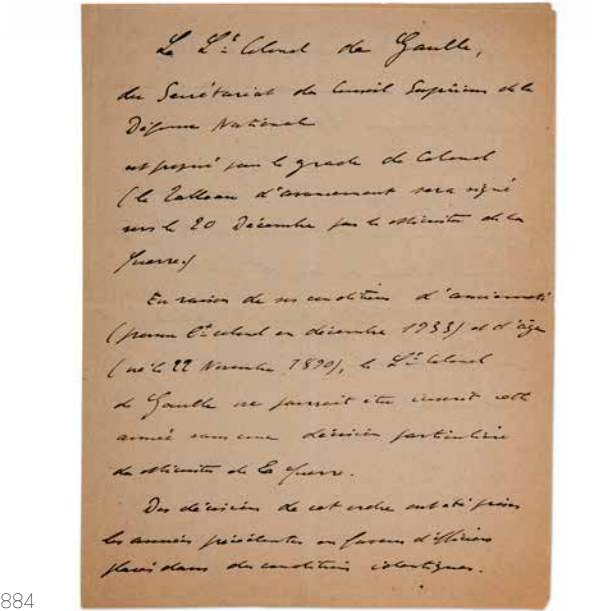 Le Lt Colonel de Gaulle,
du Secrétariat du Conseil Supérieur de la
Défense Nationale
est proposé pour le grade de Colonel
(le Tableau d'avancement sera signé
vers le 20 Décembre par le Ministre de la
Guerre)
En raison de ses conditions d'ancienneté
(promu Lt colonel en décembre 1933) et d'âge
(né le 22 Novembre 1890), le Lt Colonel
de Gaulle ne pourrait être inscrit cette
année sans une décision particulière
du Ministre de la Guerre.
Des décisions de cet ordre ont été prises
les années précédentes en faveur d'officiers
placés dans des conditions identiques.
884